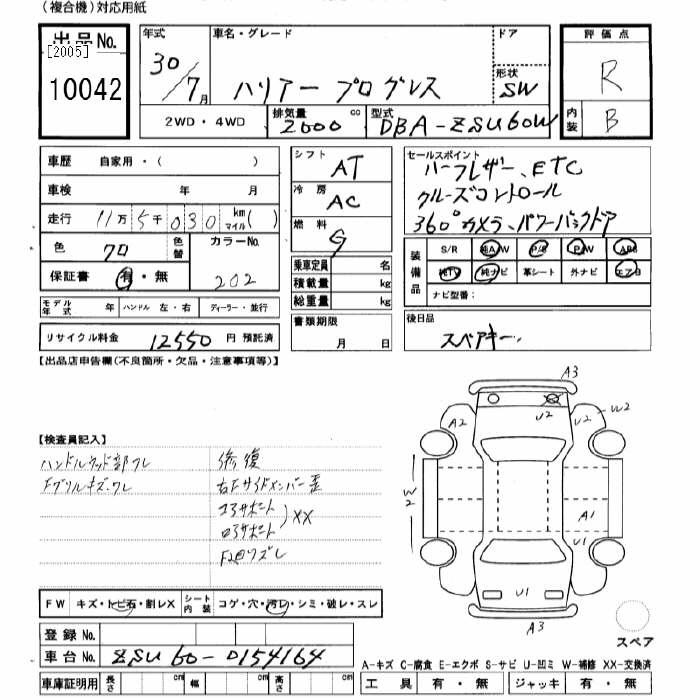 (複合機)対応用紙
出品No.
[2005]
10042
年式
30/7月
車名・グレード
ハリアー プログレス
ドア
形状
SW
評価点
R
内装
B
2WD・4WD
排気量
2000 cc
型式
DBA-ZSU60W
車歴 自家用・( )
車検 年 月
走行 11万5千030 km マイル( )
色 クロ 色替 カラーNo. 202
保証書 有・無
モデル年式 年 ハンドル 左・右 ディーラー・並行
リサイクル料金 12550 円 預託済
シフト AT
冷房 AC
燃料 G
乗車定員 名
積載量 kg
総重量 kg
書類期限
月 日
セールスポイント
ハーフレザー、ETC
クルーズコントロール
360°カメラ、パワーバックドア
装備品
S/R 純AW P/S P/W ABS
純TV 純ナビ 革シート 外ナビ エアB
ナビ型番:
後日品
スペアキー
【出品店申告欄(不良箇所・欠品・注意事項等)】
【検査員記入】
ハンドルウッド部ワレ
Fグリルキズ・ワレ
修復
右Fサイドメンバー歪
コアサポート
ロアサポート
XX
FW キズ・トビ石・割レX シート内装 コゲ・穴・汚レ・シミ・破レ・スレ
登録No.
車台No. ZSU60-0154164
車庫証明用 長さ cm 幅 cm 高さ cm
A3
A2
U2
U2
W2
W2
A1
U1
U1
A3
スペア
A-キズ C-腐食 E-エクボ S-サビ U-凹ミ W-補修 XX-交換済
工具 有・無 ジャッキ 有・無